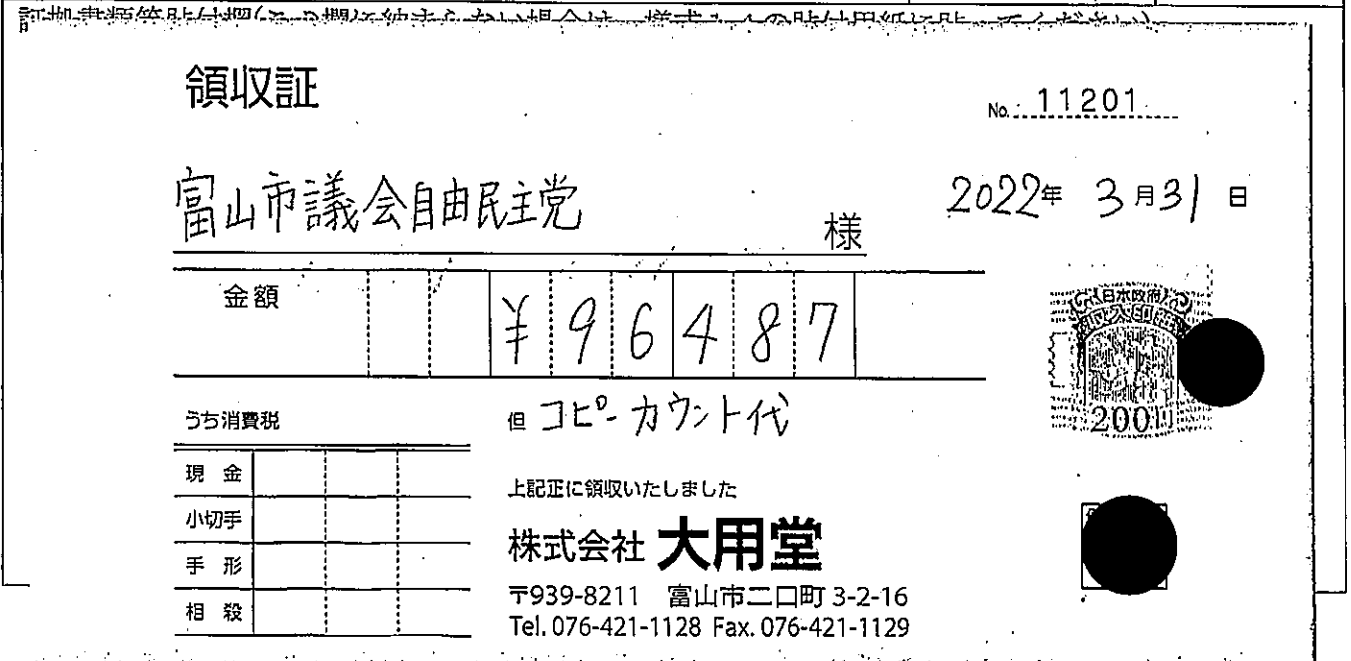 領収証
No. 11201
富山市議会自由民主党 様
2022年 3月31日
金額 ¥96487
うち消費税
但 コピーカウント代
現金
小切手
手形
相殺
上記正に領収いたしました
株式会社 大用堂
〒939-8211 富山市二口町 3-2-16
Tel. 076-421-1128 Fax. 076-421-1129
日本政府
200円